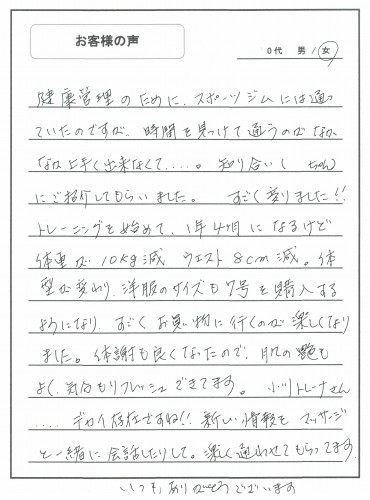 お客様の声
0代 男 / 女
健康管理のために、スポーツジムには通っ
ていたのですが、時間を見つけて通うのがなか
なか上手く出来なくて....。知り合い( ちゃん)
にご紹介してもらいました。すごく変りました!!
トレーニングを始めて、1年4ヶ月になるけど
体重が10kg減 ウエスト8cm減。体
型が変わり、洋服のサイズも7号を購入する
ようになり、すごくお買い物に行くのが楽しくなり
ました。体謝も良くなったので、肌の艶も
よく、気分もリフレッシュできてます。小川トレーナーさん
....デカイ存在ですね!!新しい情報も マッサージ
と一緒に会話したりして。楽しく通わせてもらってます。
いつもありがとうございます